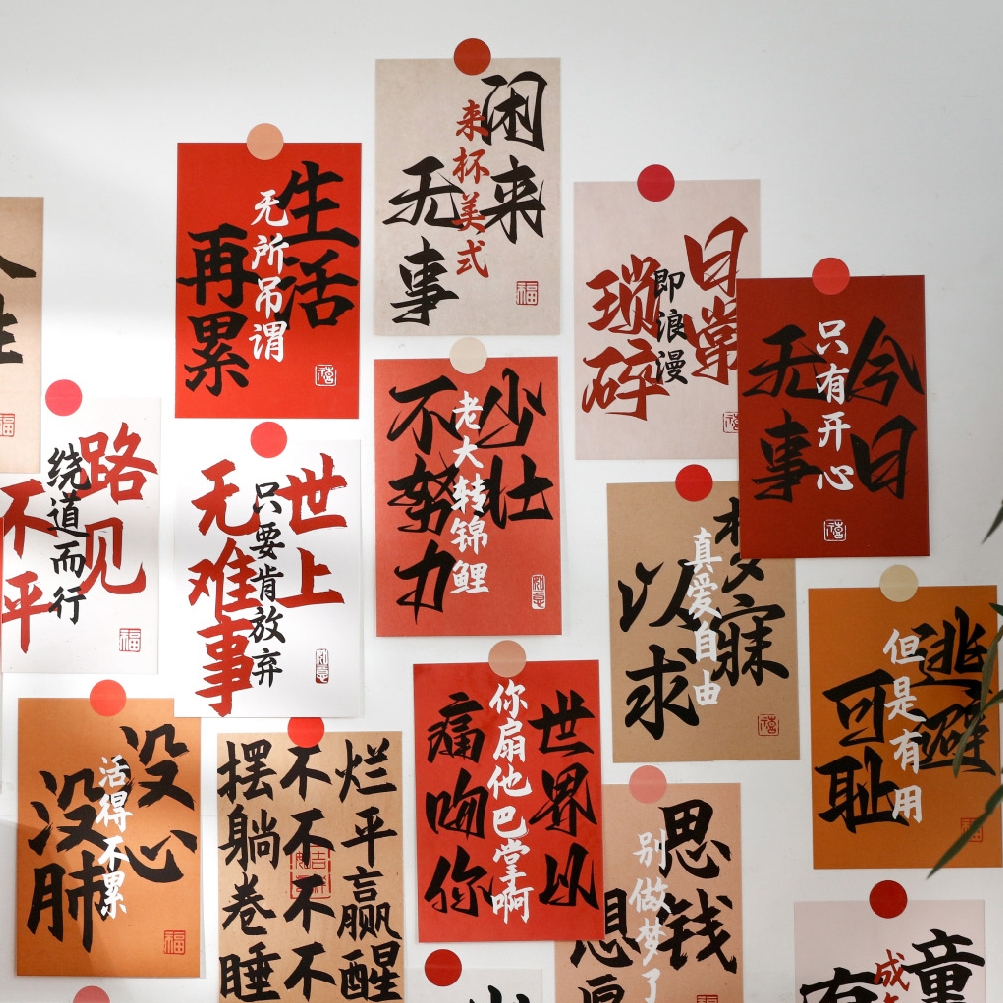 闲来
无事
来杯美式
福
生活
再累
无所吊谓
禧
日常
琐碎
即浪漫
今日
无事
只有开心
禧
少壮
不努力
老大转锦鲤
路见
不平
绕道而行
福
世上
无难事
只要肯放弃
梦寐
以求
真爱自由
禧
逃避
可耻
但是有用
没心
没肺
活得不累
福
摆不烂
躺不平
卷不赢
睡不醒
世界以
痛吻你
你扇他巴掌啊
思钱
想
别做梦了
童
成
福